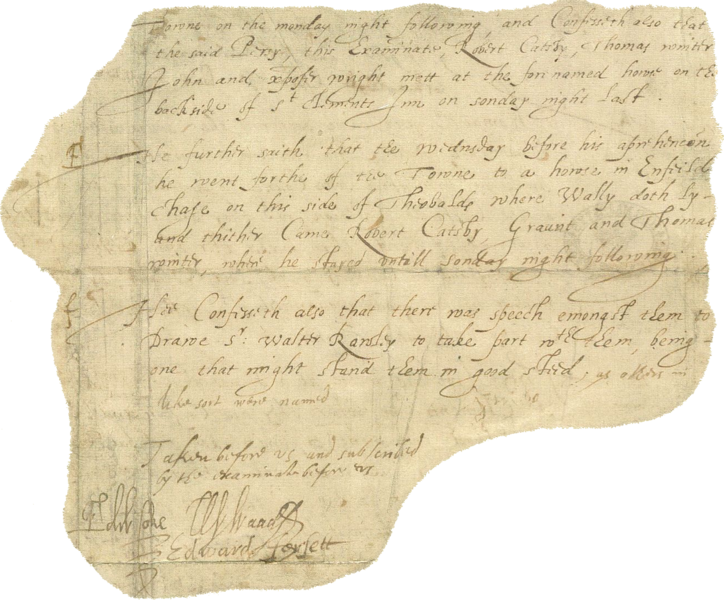 Towne on the monday night following, and Confesseth also that
the said Percy, this Examinate, Robert Catsby, Thomas winter
John and xpofer wright mett at the forenamed howse on the
backside of St Clements Inn on sonday night last.
He further saith that the wednsday before his aprehencon
he went forthe of the Towne to a howse in Enfeild
Chase on this side of Theobalds where Wally doth ly
and thither Came Robert Catsby Graunt and Thomas
winter, where he stayed untill sonday night following.
Hee Confesseth also that there was speech emongst them to
Drawe Sr: Walter Rawley to take part wth them, being
one that might stand them in good steed, as others in
like sort were named
Taken before us and subscribed
by the examinate before us
Edw Coke W Waad
Edward forsett